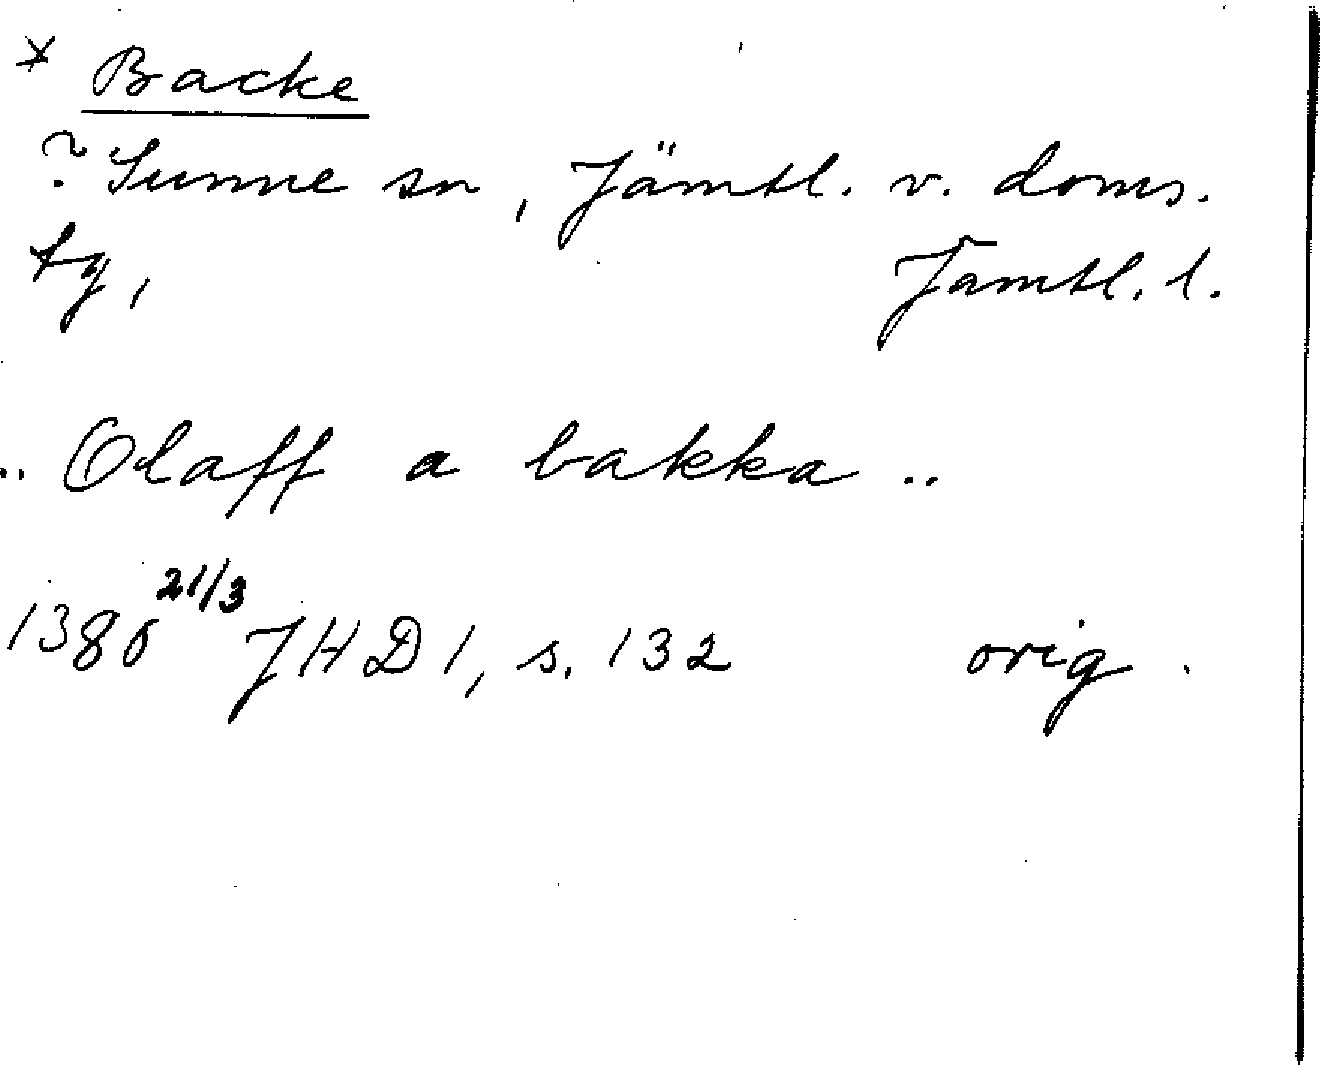 * Backe
? Sunne sn, Jämtl. v. doms.
tg, Jämtl. l.
.. Olaff a bakka ..
1386 21/3 JHD 1, s. 132 orig.